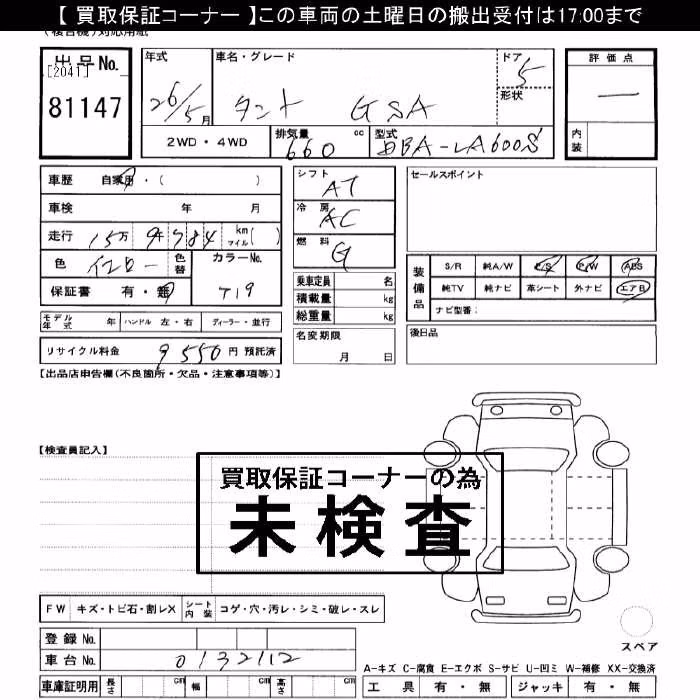 【 買取保証コーナー 】この車両の土曜日の搬出受付は17:00まで
出品No.
[2041]
81147
年式
26/5月
車名・グレード
タント GSA
ドア
5
形状
評価点
—
内装
2WD・4WD
排気量 660 cc
型式 DBA-LA600S
車歴 自家用・( )
車検 年 月
走行 15万 9千784 km マイル( )
色 イエロー 色替
カラーNo. T19
保証書 有・無
モデル年式 年 ハンドル 左・右 ディーラー・並行
リサイクル料金 9550 円 預託済
シフト AT
冷房 AC
燃料 G
乗車定員 名
積載量 kg
総重量 kg
名変期限
月 日
セールスポイント
装備品
S/R 純A/W P/S P/W ABS
純TV 純ナビ 革シート 外ナビ エアB
ナビ型番:
後日品
【出品店申告欄(不良箇所・欠品・注意事項等)】
【検査員記入】
買取保証コーナーの為
未検査
FW キズ・トビ石・割レX シート内装 コゲ・穴・汚レ・シミ・破レ・スレ
登録No.
車台No. 0132112
車庫証明用 長さ cm 幅 cm 高さ cm
スペア
A-キズ C-腐食 E-エクボ S-サビ U-凹ミ W-補修 XX-交換済
工具 有・無 ジャッキ 有・無